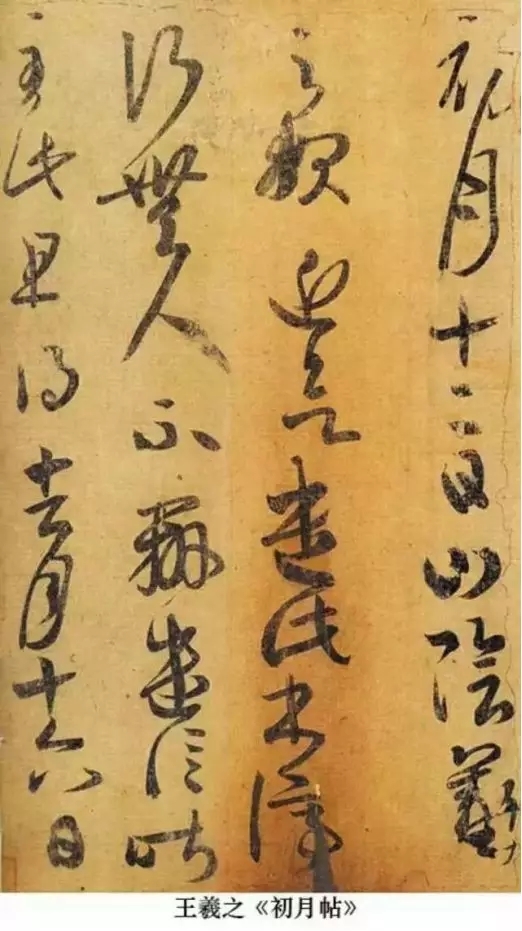 初月十二日山陰羲
之報近欲遣此書停
行無人不辦遣信昨
至此且得去月十六日
王羲之《初月帖》